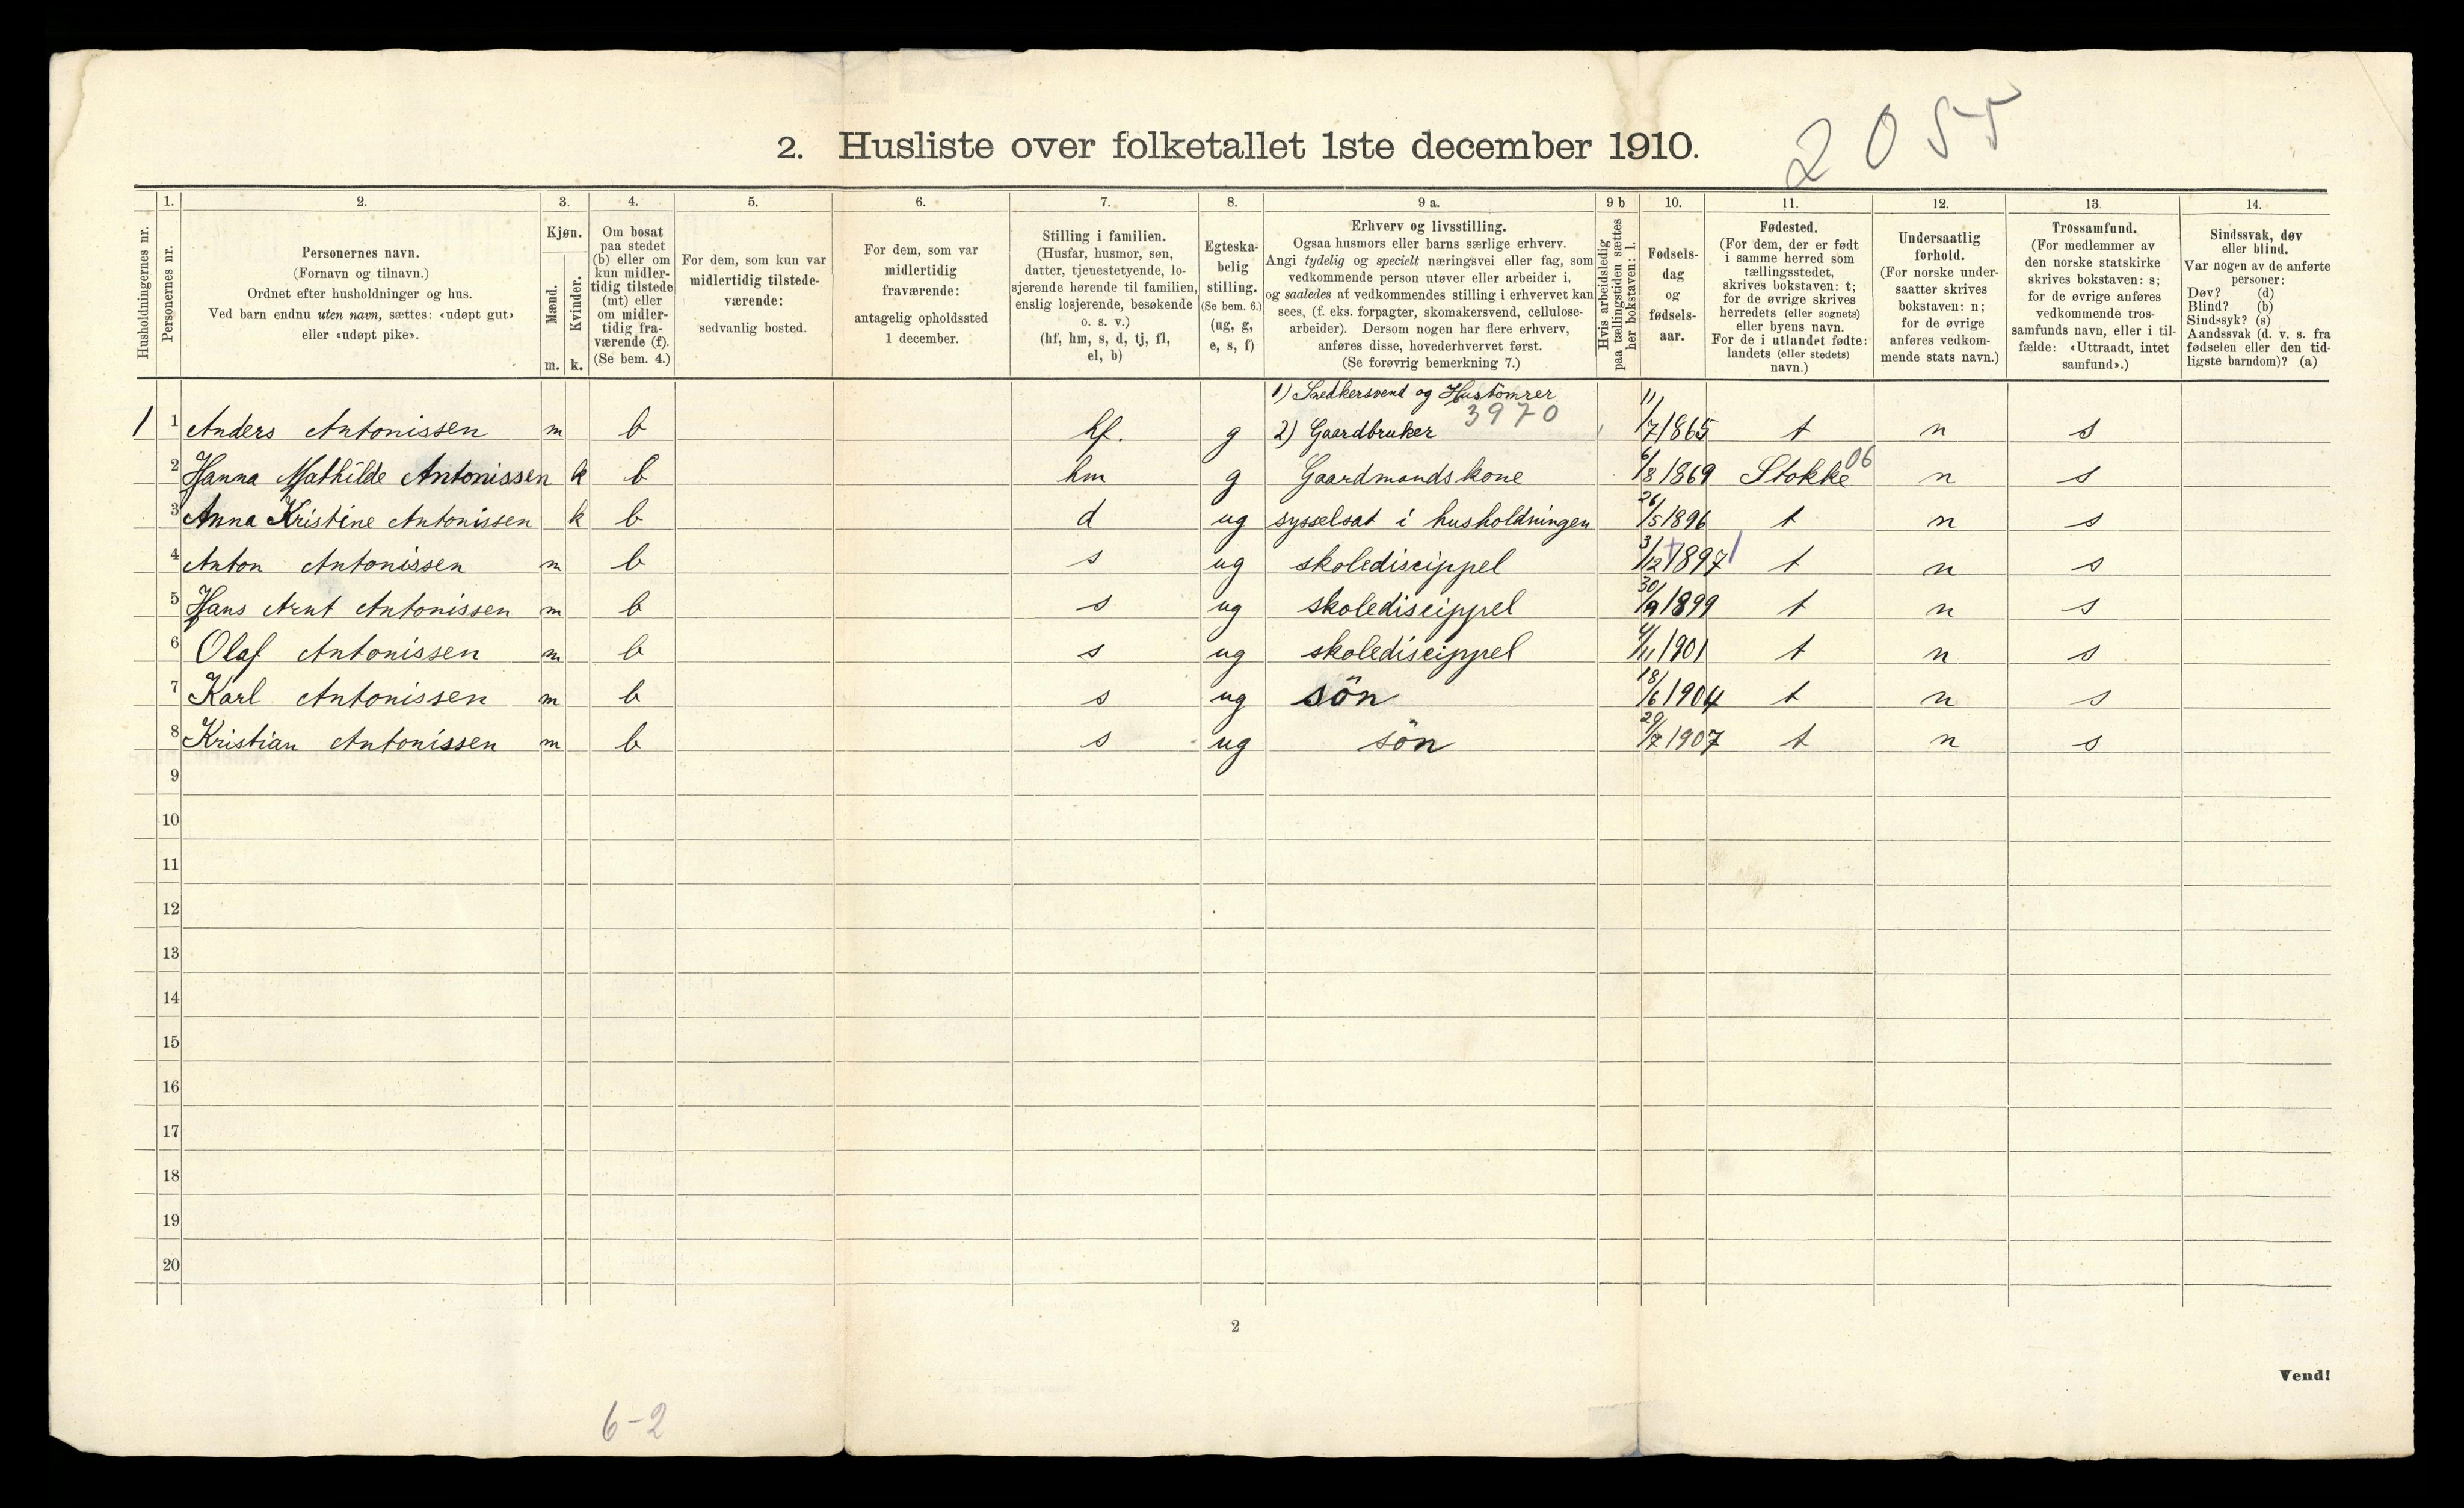 2055
2. Husliste over folketallet 1ste december 1910.
Husholdningernes nr.
1.
Personernes nr.
2.
Personernes navn.
(Fornavn og tilnavn.)
Ordnet efter husholdninger og hus.
Ved barn endnu uten navn, sættes: «udøpt gut»
eller «udøpt pike».
3.
Kjøn.
Mænd.
m.
Kvinder.
k.
4.
Om bosat
paa stedet
(b) eller om
kun midler-
tidig tilstede
(mt) eller
om midler-
tidig fra-
værende (f).
(Se bem. 4.)
5.
For dem, som kun var
midlertidig tilstede-
værende:
sedvanlig bosted.
6.
For dem, som var
midlertidig
fraværende:
antagelig opholdssted
1 december.
7.
Stilling i familien.
(Husfar, husmor, søn,
datter, tjenestetyende, lo-
sjerende hørende til familien,
enslig losjerende, besøkende
o. s. v.)
(hf, hm, s, d, tj, fl,
el, b)
8.
Egteska-
belig
stilling.
(Se bem. 6.)
(ug, g,
e, s, f)
9 a.
Erhverv og livsstilling.
Ogsaa husmors eller barns særlige erhverv.
Angi tydelig og specielt næringsvei eller fag, som
vedkommende person utøver eller arbeider i,
og saaledes at vedkommendes stilling i erhvervet kan
sees, (f. eks. forpagter, skomakersvend, cellulose-
arbeider). Dersom nogen har flere erhverv,
anføres disse, hovederhvervet først.
(Se forøvrig bemerkning 7.)
9 b
Hvis arbeidsledig
paa tællingstiden sættes
her bokstaven: l.
10.
Fødsels-
dag
og
fødsels-
aar.
11.
Fødested.
(For dem, der er født
i samme herred som
tællingsstedet,
skrives bokstaven: t;
for de øvrige skrives
herredets (eller sognets)
eller byens navn.
For de i utlandet fødte:
landets (eller stedets)
navn.)
12.
Undersaatlig
forhold.
(For norske under-
saatter skrives
bokstaven: n;
for de øvrige
anføres vedkom-
mende stats navn.)
13.
Trossamfund.
(For medlemmer av
den norske statskirke
skrives bokstaven: s;
for de øvrige anføres
vedkommende tros-
samfunds navn, eller i til-
fælde: «Uttraadt, intet
samfund».)
14.
Sindssvak, døv
eller blind.
Var nogen av de anførte
personer:
Døv? (d)
Blind? (b)
Sindssyk? (s)
Aandssvak (d. v. s. fra
fødselen eller den tid-
ligste barndom)? (a)
1) Snedkersvend og Hustömrer
3970
1 1 Anders Antonissen m b hf. g 2) Gaardbruker 11/7 1865 t n s
2 Hanna Mathilde Antonissen k b hm g Gaardmandskone 6/8 1869 Stokke 06 n s
3 Anna Kristine Antonissen k b d ug sysselsat i husholdningen 26/5 1896 t n s
4 Anton Antonissen m b s ug skolediscippel 3/12 1897 t n s
5 Hans Arnt Antonissen m b s ug skolediscippel 30/9 1899 t n s
6 Olaf Antonissen m b s ug skolediscippel 4/11 1901 t n s
7 Karl Antonissen m b s ug sön 18/6 1904 t n s
8 Kristian Antonissen m b s ug sön 29/7 1907 t n s
9
10
11
12
13
14
15
16
17
18
19
20
2
Vend!
6-2